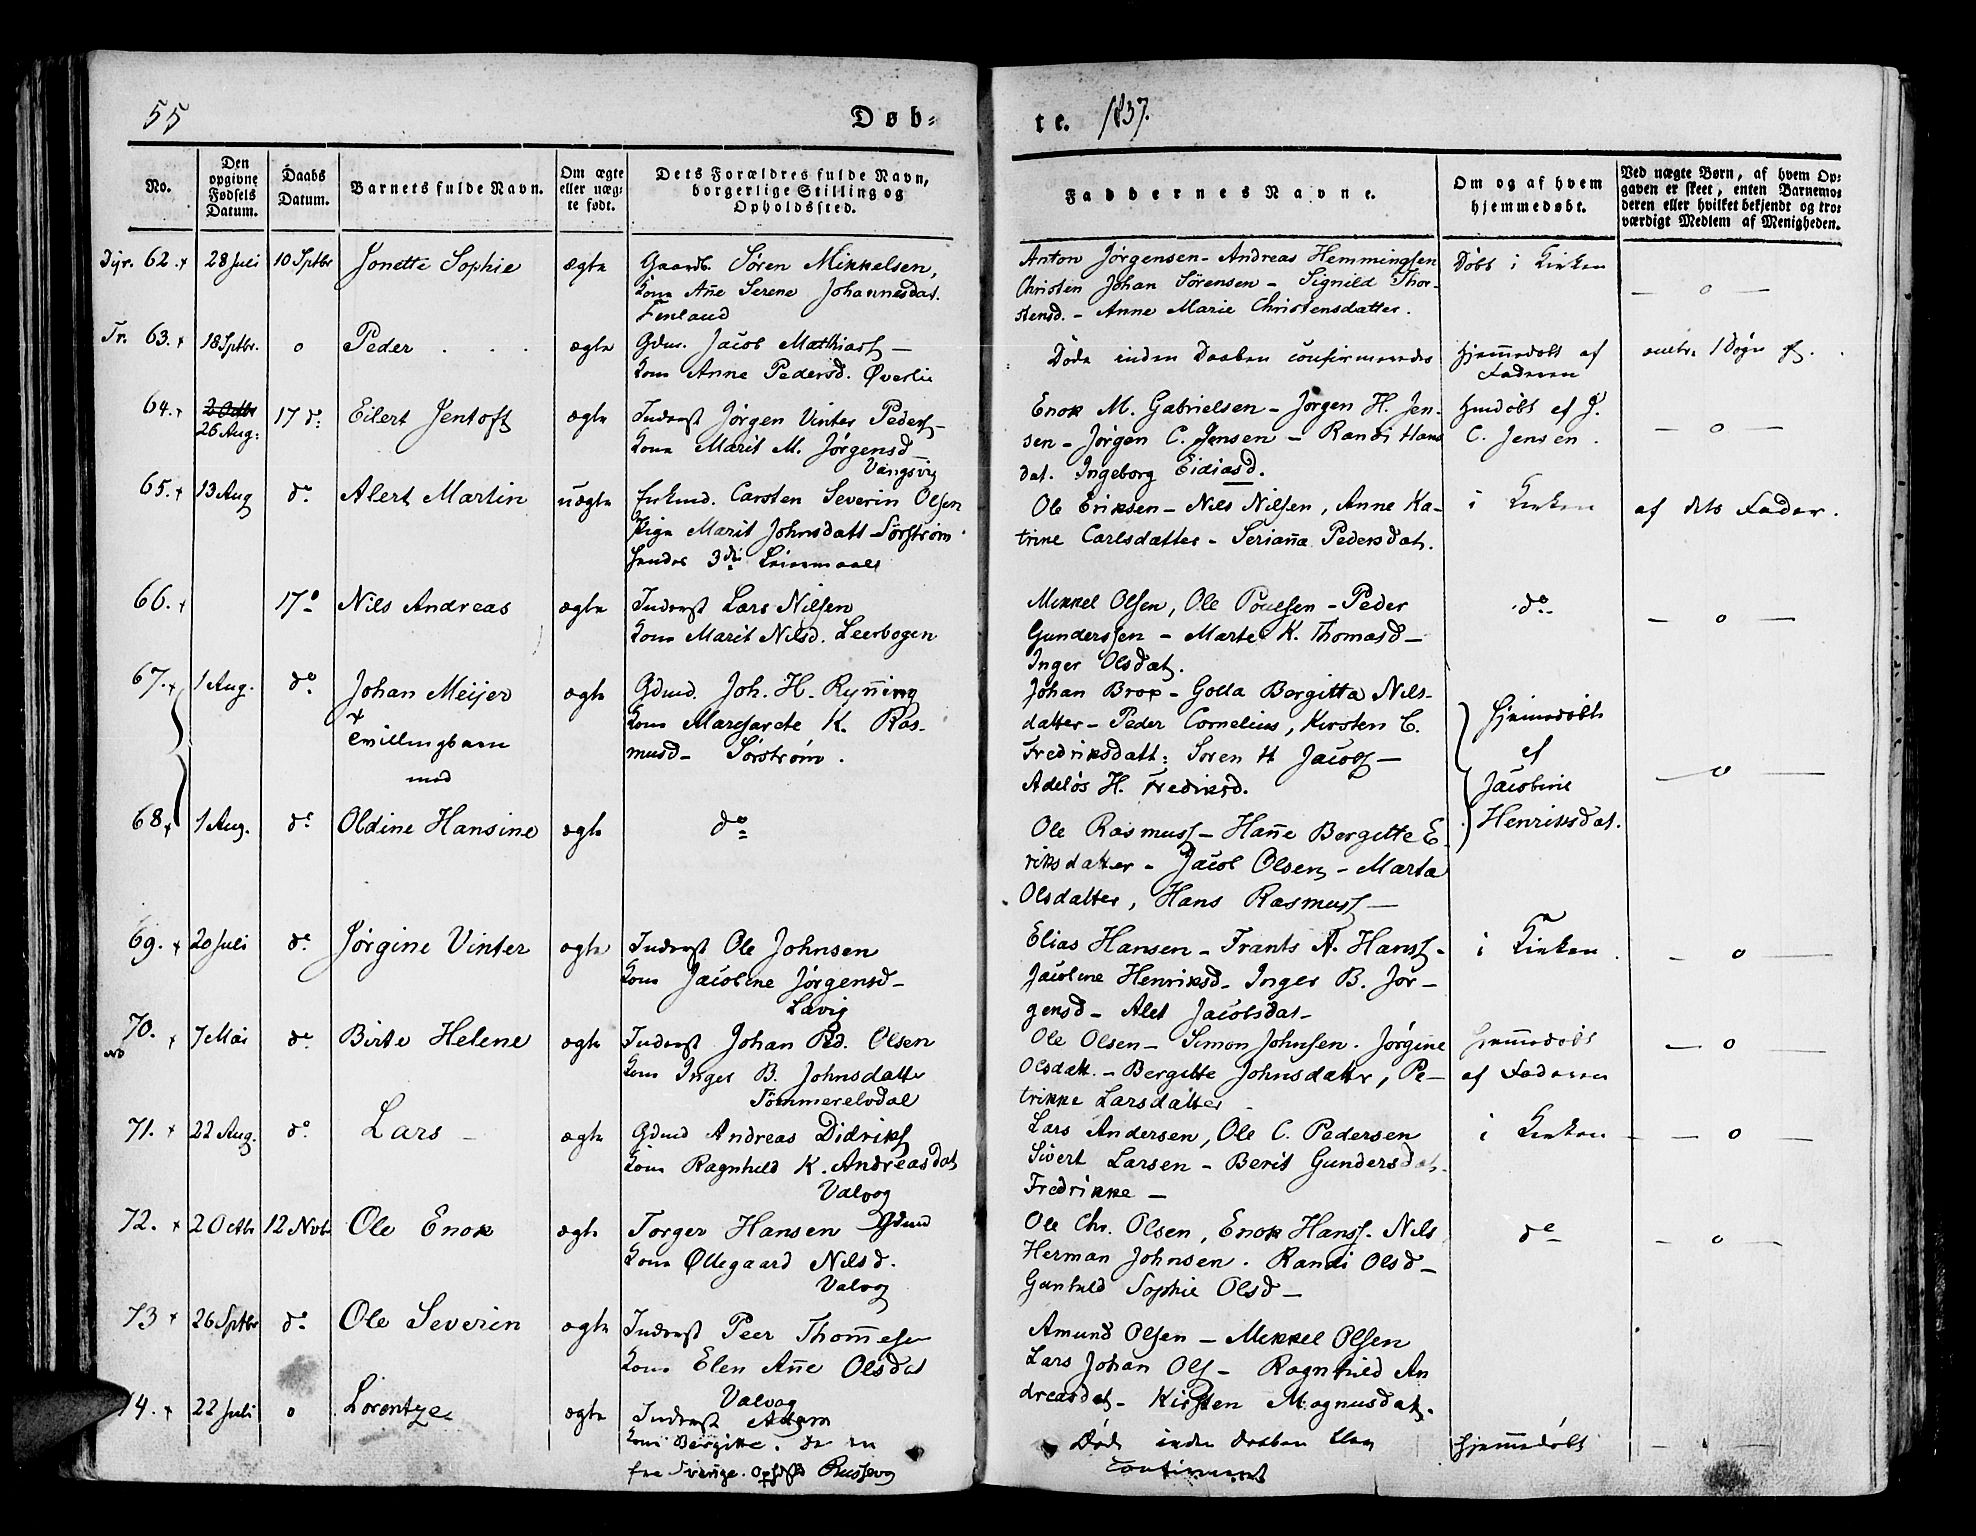 55
Døb-
te. 1837.
No.
Den opgivne Fødsels Datum.
Daabs Datum.
Barnets fulde Navn.
Om ægte eller uæg-te født.
Dets Forældres fulde Navn, borgerlige Stilling og Opholdssted.
Faddernes Navne.
Om og af hvem hjemmedøbt.
Ved uægte Børn, af hvem Op-gaven er skeet, enten Barnemo-deren eller hvilket bekjendt og tro-værdigt Medlem af Menigheden.
62. 28 Juli 10 Sptbr Jonette Sophie ægte Gaardb. Søren Mikkelsen,
Kone Añe Serene Johannesdat.
Finland
Anton Jørgensen - Andreas Hemmingsen
Christen Johan Sørensen - Signild Thor-
stensd. - Anne Marie Christensdatter.
Døbt i Kirken
— o —
Tr. 63. 18 Sptbr. o Peder ægte Gdm. Jacob Mathias —
Kone Anne Pedersd. Øverlie
Døde inden Daaben confirmeredes
Hjem̃edøbt af
Faderen
1 Døgn
64. 2 Octbr
26 Aug: 17 d: Eilert Jentoft ægte Inderst Jørgen Vinter Peders —
Kone Marit M. Jørgensd
Vangsvig
Enok M. Gabrielsen - Jørgen H. Jen-
sen - Jørgen C. Jensen - Randi Hans
dat. Ingeborg Eidiasd.
Hmdøbt af J.
C. Jensen.
— o —
65. 13 Aug d. Alert Martin uægte Carsten Severin Olsen
Pige Marit Johnsdatt Sørstrøm
3di Leiermaal
Ole Eriksen - Nils Nilsen, Anne Ka-
trine Carlsdatter - Seriaña Pedersdat.
i Kirken
af dets Fader.
66. 17 Nils Andreas ægte Inderst Lars Nilsen
Kone Marit Nilsd. Leerbogen
Mikkel Olsen, Ole Poulsen - Peder
Gunderssen - Marte K. Thomasd —
Inger Olsdat.
do
— o —
67. 1 Aug. do Johan Meijer
Tvillingbarn
med
ægte Gdmd. Joh. H. Ryñing
Kone Margarete K. Ras-
musd - Sørstrøm.
Johan Brox - Golla Bergitta Nils-
datter - Peder Cornelius, Kirsten C.
Fredriksdatt: Søren H Jacobs —
Adelós H. Fredriksd.
Hjem̃edøbte
af
Jacobine
Henriksdat.
— o —
68. 1 Aug. d. Oldine Hansine ægte do
Ole Rasmuss - Hañe Bergitte E-
riksdatter - Jacob Olsen - Marta
Olsdatter, Hans Rasmuss —
69. 20 Juli d. Jørgine Vinter ægte Inderst Ole Johnsen
Kone Jacobine Jørgensd -
Lavig
Elias Hansen - Frants A. Hans -
Jacobine Henriksd - Inger B. Jør-
gensd - Alet Jacobsdat -
i Kirken
— o —
70. 7 Mai d. Birte Helene ægte Inderst Johan Pd. Olsen
Kone Inger B. Johnsdatter
Tømmerelvdal
Ole Olsen - Simon Johnsen. Jørgine
Olsdatt. - Bergitte Johnsdatter, Pe-
trikke Larsdatter
Hjem̃edøbt
af Faderen
— o —
71. 22 Aug. d. Lars ægte Gdmd Andreas Didriks
Kone Ragnhild K. Andreasdat
Valvog
Lars Andersen, Ole C. Pedersen
Sivert Larsen - Berit Gundersdat.
Fredrikke —
i Kirken
— o —
72. 2 Octbr 12 Nvbr Ole Enok ægte Torger Hansen Gdmd
Kone Øllegaard Nilsd.
Valvog
Ole Chr. Olsen, Enok Hanss. Nils
Herman Johnsen. Randi Olsd —
Gunhild Sophie Olsd —
do
— o —
73 26 Sptbr d. Ole Severin ægte Inderst Peer Thom̃esen
Kone Elen Añe Olsdat
Valvog
Amund Olsen - Mikkel Olsen
Lars Johan Ols - Ragnhild An
dreasdat - Kirsten Magnusdat.
74. 22 Juli o Lorentze ægte Inderst Adam
Kone Bergitte.
fra Sverige.
Døde inden Daaben
Hjem̃edøbt